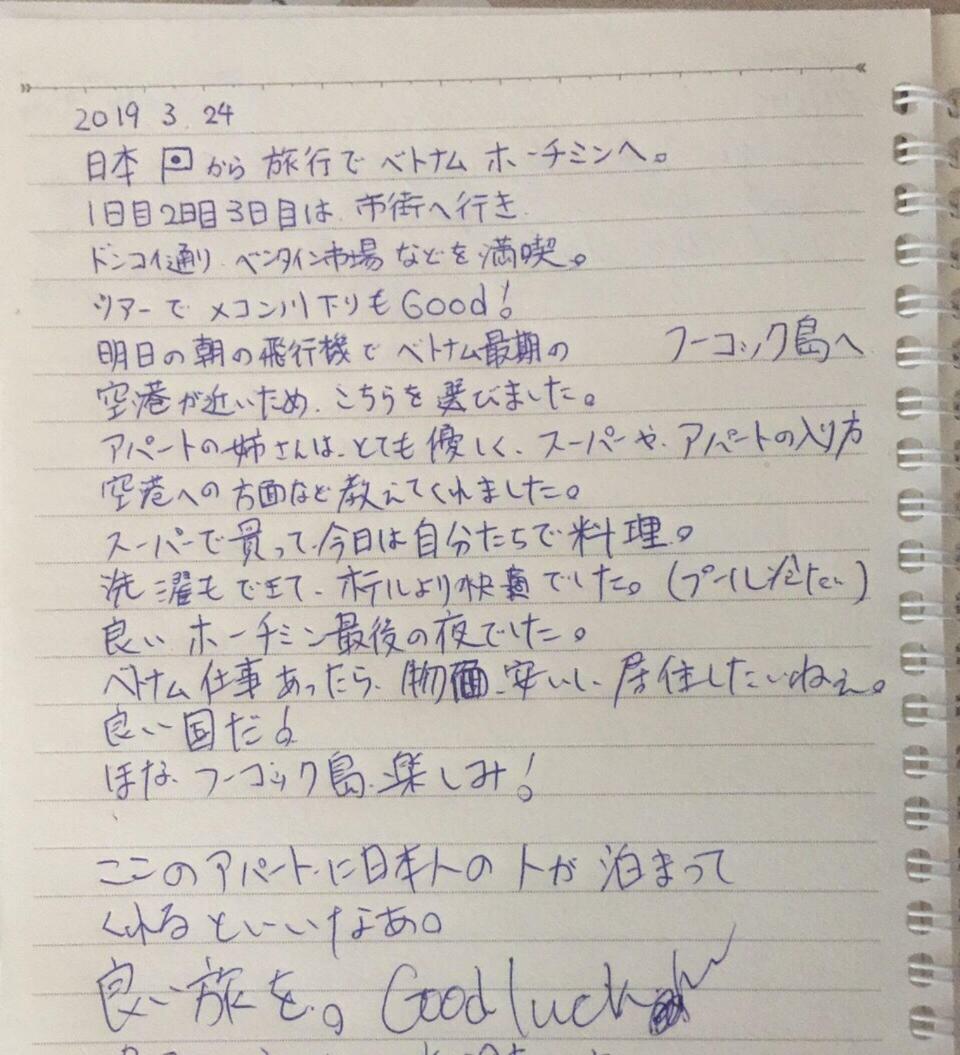 2019 3. 24
日本 から 旅行で ベトナム ホーチミンへ。
1日目2日目3日目は 市街へ行き
ドンコイ通り ベンタイン市場 などを 満喫。
ツアーで メコン川下りも Good!
明日の朝の飛行機で ベトナム最期の フーコック島へ
空港が近いため、こちらを選びました。
アパートの姉さんは、とても優しく、スーパーや、アパートの入り方
空港への方面など教えてくれました。
スーパーで買って、今日は自分たちで料理。
洗濯もできて、ホテルより快適でした。(プール冷たい)
良い ホーチミン最後の夜でした。
ベトナム仕事あったら、物価 安いし、居住したいねぇ。
良い国だ!
ほな、フーコック島、楽しみ!
ここのアパートに日本人の 人が 泊まって
くれるといいなあ。
良い旅を。Good luck